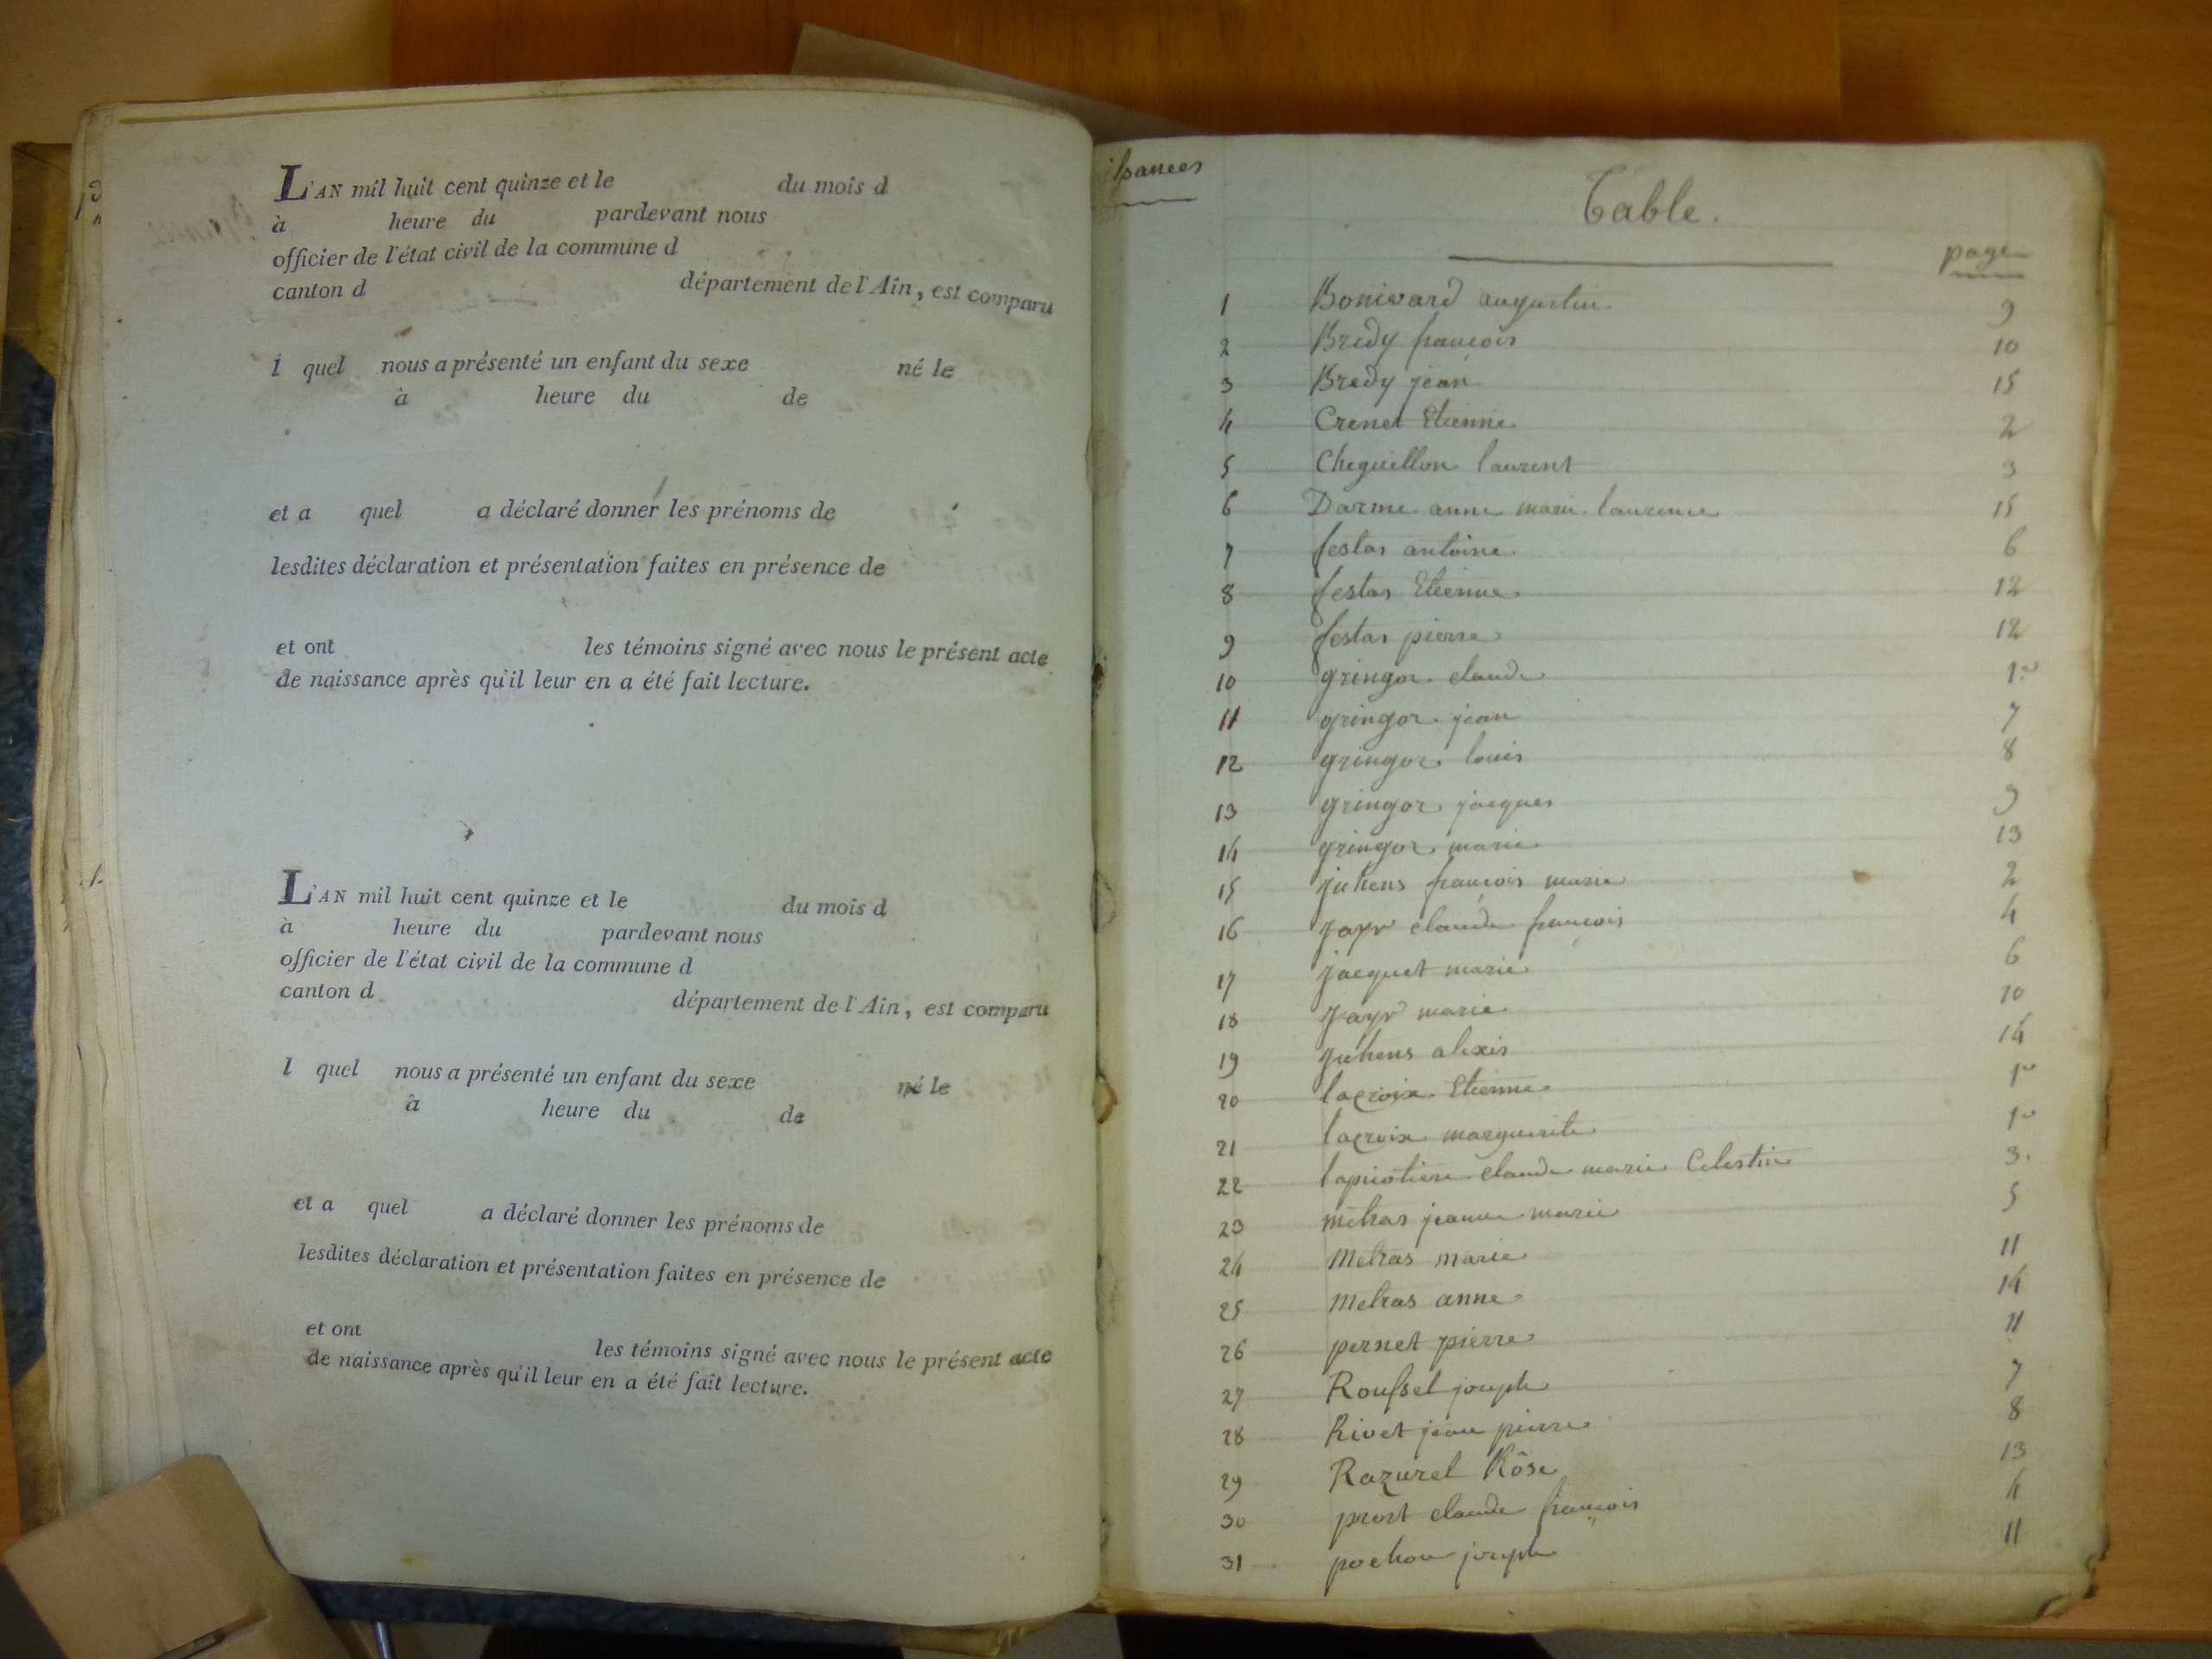 L'AN mil huit cent quinze et le du mois d
à heure du pardevant nous
officier de l'état civil de la commune d
canton d département de l'Ain, est comparu
l quel nous a présenté un enfant du sexe né le
à heure du de
et a quel a déclaré donner les prénoms de
lesdites déclaration et présentation faites en présence de
et ont les témoins signé avec nous le présent acte
de naissance après qu'il leur en a été fait lecture.
L'AN mil huit cent quinze et le du mois d
à heure du pardevant nous
officier de l'état civil de la commune d
canton d département de l'Ain, est comparu
l quel nous a présenté un enfant du sexe né le
à heure du de
et a quel a déclaré donner les prénoms de
lesdites déclaration et présentation faites en présence de
et ont les témoins signé avec nous le présent acte
de naissance après qu'il leur en a été fait lecture.
Table.
page
1 Bonivard augustin 9
2 Bredy françois 10
3 Bredy jean 15
4 Crenet Etienne 2
5 Cheguillon laurent 3
6 Darme anne marie laurence 15
7 festas antoine 6
8 festas Etienne 12
9 festas pierre 12
10 gringoz claude 1er
11 gringoz jean 7
12 gringoz louis 8
13 gringoz jacques 9
14 gringoz marie 13
15 juhens françois marie 2
16 Jayr claude françois 4
17 jacquet marie 6
18 Jayr marie 10
19 juhens alexis 14
20 lacroix Etienne 1er
21 lacroix marguerite 1er
22 claude marie Celestin 3.
23 metras jeanne marie 5
24 Metras marie 11
25 Metras anne 14
26 pernet pierre 11
27 Roussel joseph 7
28 Rivet jean pierre 8
29 Razurel Rose 13
30 prost claude françois 4
31 pochon joseph 11